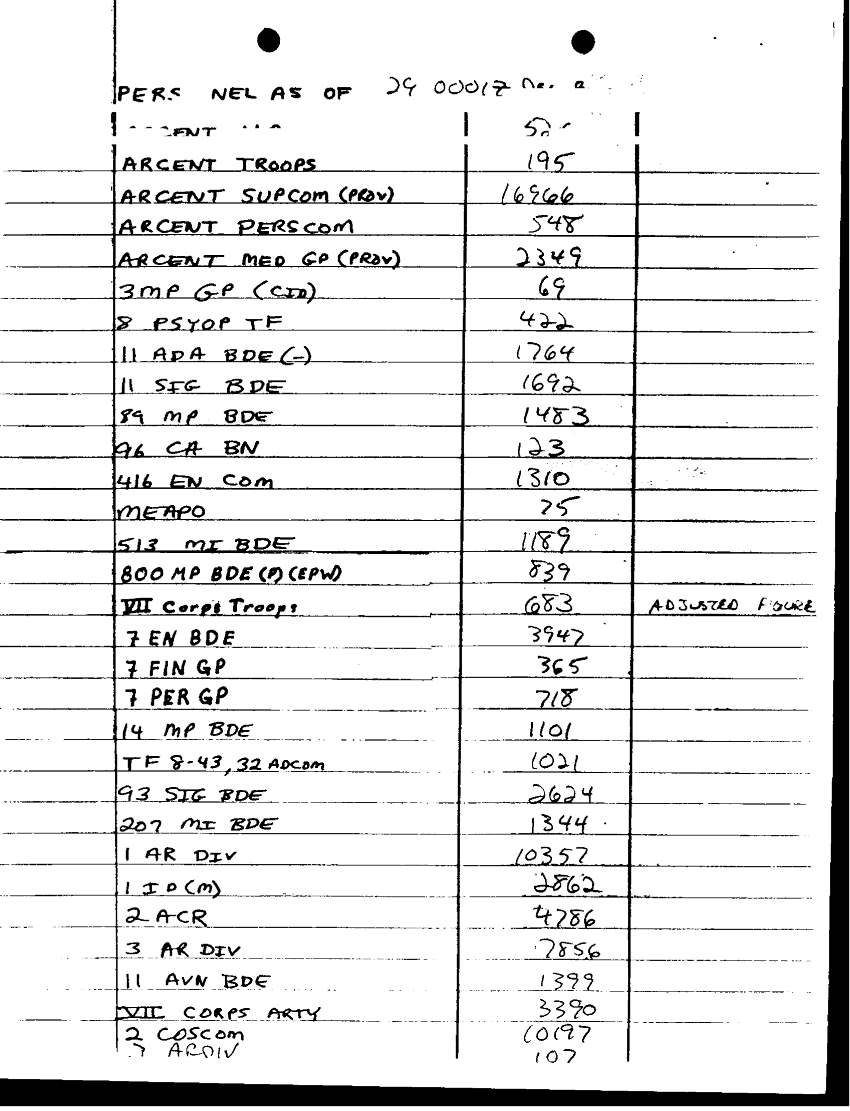 PERS NEL AS OF 29 0001Z
ARCENT TROOPS 195
ARCENT SUPCOM (PROV) 16966
ARCENT PERSCOM 548
ARCENT MED GP (PROV) 2349
3 MP GP (CID) 69
8 PSYOP TF 422
11 ADA BDE (-) 1764
11 SIG BDE 1692
89 MP BDE 1483
96 CA BN 123
416 EN COM 1310
MEAPO 25
513 MI BDE 1189
800 MP BDE (P) (EPW) 839
VII Corps Troops 683 ADJUSTED FIGURE
7 EN BDE 3947
7 FIN GP 365
7 PER GP 718
14 MP BDE 1101
TF 8-43, 32 ADCOM 1021
93 SIG BDE 2624
207 MI BDE 1344
1 AR DIV 10357
1 ID (M) 2862
2 ACR 4786
3 AR DIV 7856
11 AVN BDE 1399
VII CORPS ARTY 3390
2 COSCOM 10197
ARDIV 107